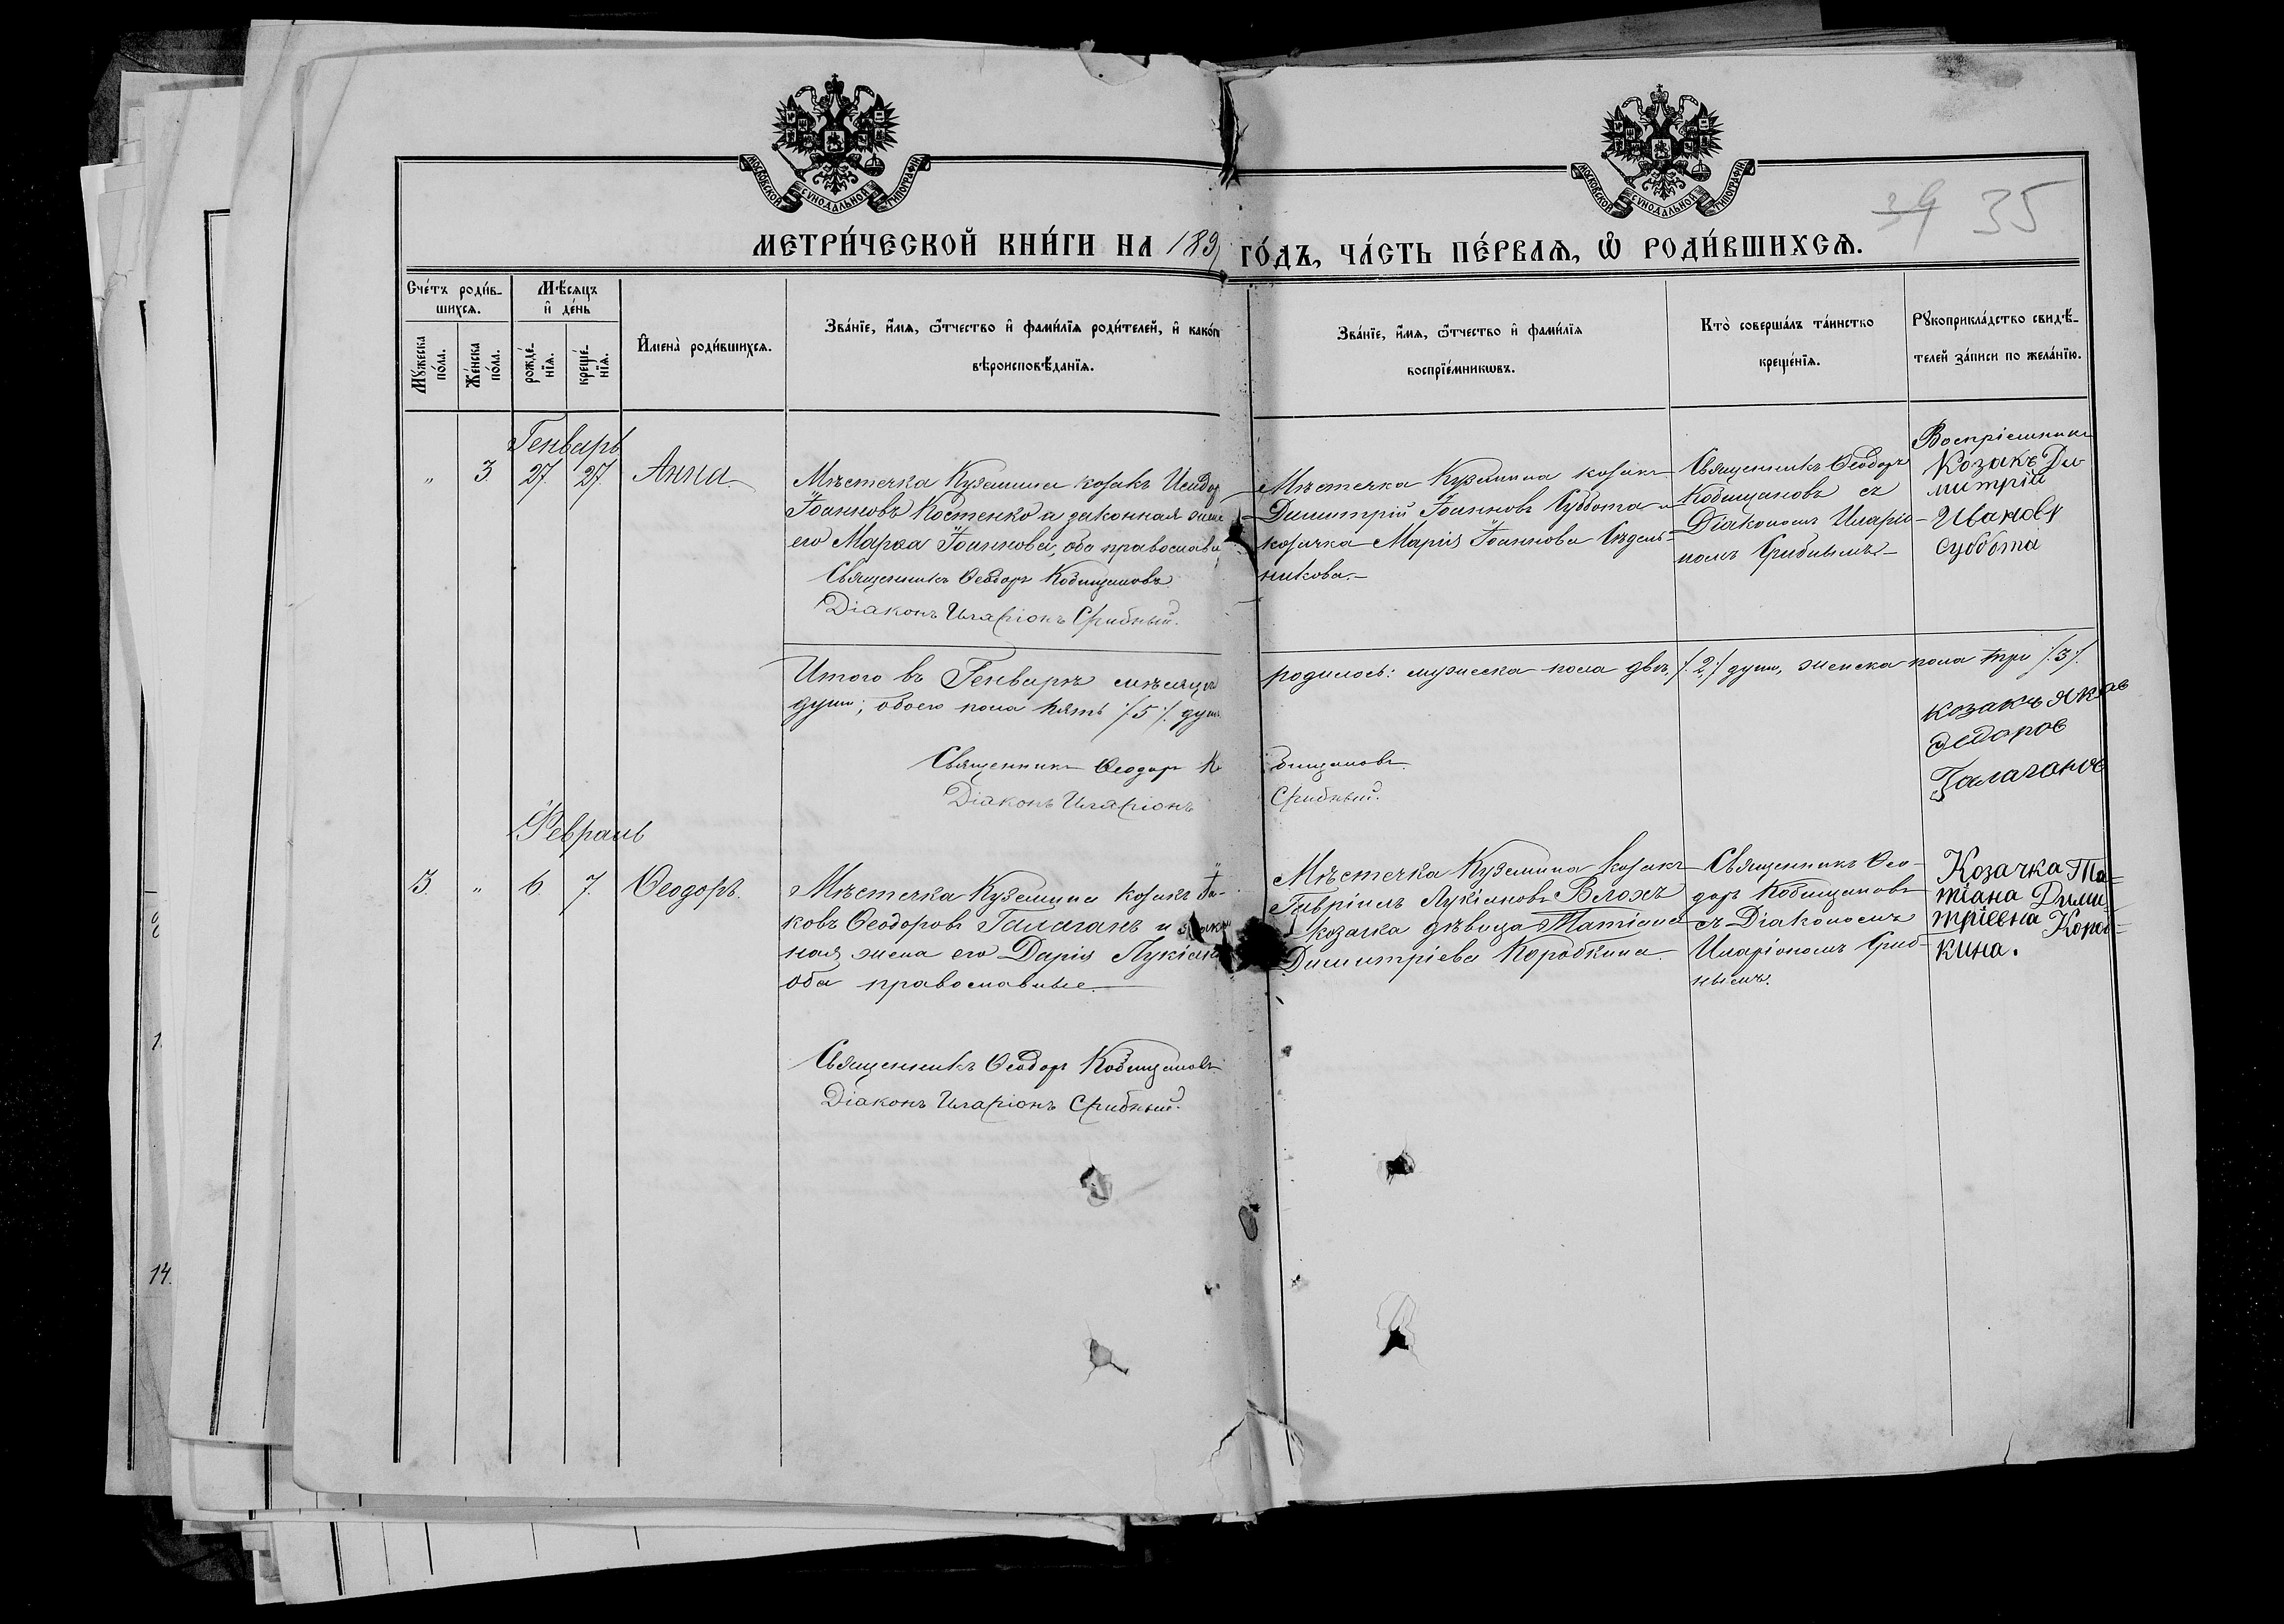 МОСКОВСКОЙ СѴНОДАЛЬНОЙ ТИПОГРАФІИ
МОСКОВСКОЙ СѴНОДАЛЬНОЙ ТИПОГРАФІИ
34 35
МЕТРИ́ЧЕСКОЙ КНИ́ГИ НА 189
ГО́ДЪ, ЧА́СТЬ ПЕ́РВАѦ, Ѡ РОДИ́ВШИХСѦ.
Сче́тъ роди́в-
шихсѧ.
Мꙋ́жеска по́ла.
Же́нска по́ла.
Мѣ́сѧцъ
и҆ де́нь
рожде́-
нїѧ.
креще́-
нїѧ.
И҆мена̀ роди́вшихсѧ.
Зва́нїе, и҆́мѧ, ѻ҆́тчество и҆ фами́лїѧ роди́телей, и҆ како́гѡ
вѣроисповѣ́данїѧ.
Зва́нїе, и҆́мѧ, ѻ҆́тчество и҆ фами́лїѧ
воспрїе́мникѡвъ.
Кто̀ соверша́лъ та́инство
креще́нїѧ.
Рꙋкоприкла́дство свидѣ́-
телей за́писи по жела́нїю.
Генварь
" 3. 27. 27. Анна.
Мѣстечка Куземина козакъ Исидор
Іоанновъ Костенко и законная жена
его Марѳа Іоаннова, оба православн
Священникъ Ѳеодоръ Кобищановъ
Діаконъ Иларіонъ Срибный.
Мѣстечка Куземина козакъ
Димитрій Іоанновъ Суббота и
козачка Марія Іоаннова Сѣдель-
никова.
Священникъ Ѳеодоръ
Кобищановъ съ
Діакономъ Иларіо-
номъ Срибнымъ
Воспріемникъ
Козакъ Ди
митрій
Ивановъ
Суббота
Итого въ Генварѣ мѣсяцѣ родилось: мужеска пола двѣ /.2./ души, женска пола три /.3./
душ; обоего пола пять /.5./ душ
Священникъ Ѳеодоръ Кобищановъ
Діаконъ Иларіонъ Срибный.
козакъ Яков
Федоров
Галаганов
Февраль
3. " 6. 7. Ѳеодоръ.
Мѣстечка Куземина козакъ Іа-
ковъ Ѳеодоровъ Галаганъ и закон
ная жена его Дарія Лукіан
оба православные.
Священникъ Ѳеодоръ Кобищановъ
Діаконъ Иларіонъ Срибный.
Мѣстечка Куземина козакъ
Гавріилъ Лукіановъ Волохъ
козачка дѣвица Татіана
Димитріева Коробкина.
Священникъ Ѳео-
доръ Кобищановъ
съ Діакономъ
Иларіономъ Сриб-
нымъ.
Козачка Та-
тіана Дими-
тріевна Короб-
кина.
1.
14.